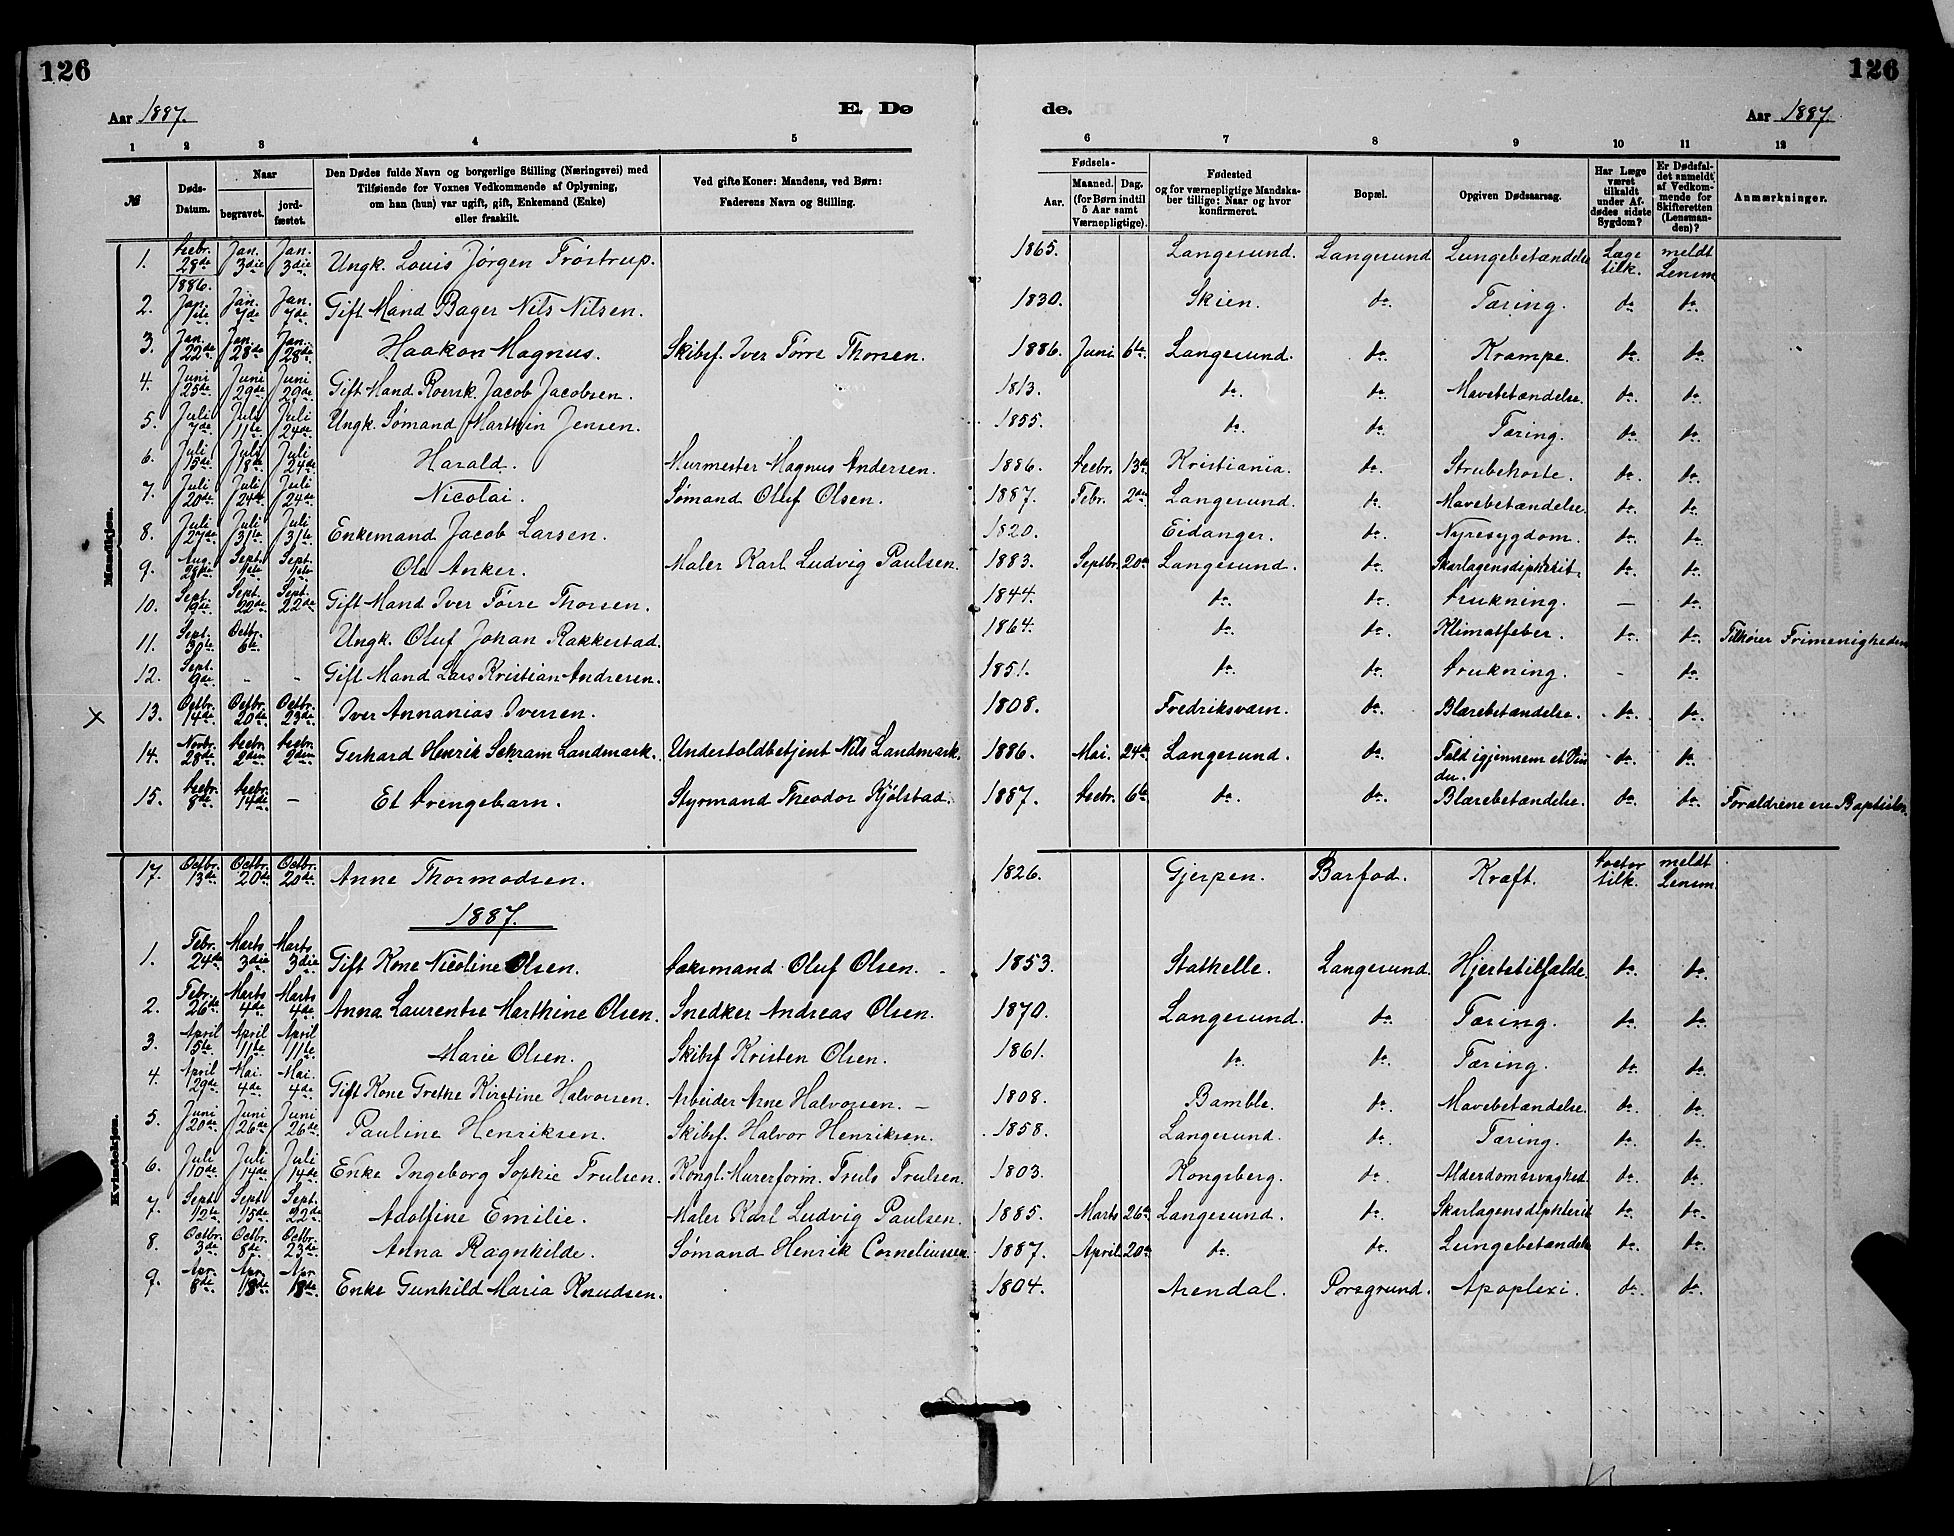 126
126
Aar 1887.
E. Dø
de.
Aar 1887.
1 2 3 4 5 6 7 8 9 10 11 12
№
Døds-Datum.
Naar
begravet.
jordfæstet.
Den Dødes fulde Navn og borgerlige Stilling (Næringsvei) med
Tilføiende for Voxnes Vedkommende af Oplysning,
om han (hun) var ugift, gift, Enkemand (Enke)
eller fraskilt.
Ved gifte Koner: Mandens, ved Børn:
Faderens Navn og Stilling.
Fødsels-
Aar.
Maaned. Dag.
(for Børn indtil
5 Aar samt
Værnepligtige).
Fødested
og for værnepligtige Mandska-
ber tillige: Naar og hvor
konfirmeret.
Bopæl.
Opgiven Dødsaarsag.
Har Læge
været
tilkaldt
under Af-
dødes sidste
Sygdom?
Er Dødsfal-
det anmeldt
af Vedkom-
mende for
Skifteretten
(Lensman-
den)?
Anmærkninger.
Mandkjøn.
1. Decbr. 28de 1886. Jan. 3die Jan. 3die Ungk. Louis Jørgen Trøstrup. 1865. Langesund. Langesund Lungebetændelse Læge tilk. meldt Lensm
2. Jan. 1ste Jan. 7de Jan. 7de Gift Mand Bager Nils Nilsen. 1830. Skien. do. Tæring. do. do.
3. Jan. 22de Jan. 28de Jan. 28de Haakon Magnus. Skibsf. Iver Tørre Thorsen. 1886. Juni 6te Langesund. do. Krampe. do. do.
4. Juni 25de Juni 29de Juni 29de Gift Mand Rorsk. Jacob Jacobsen. 1813. do. do. Mavebetændelse. do. do.
5. Juli 7de Juli 11te Juli 24de Ungk. Sømand Marthin Jensen. 1855. do. do. Tæring. do. do.
6. Juli 15de Juli 18de Juli 24de Harald. Murmester Magnus Andersen. 1886. Decbr. 13de Kristiania. do. Strubehoste. do. do.
7. Juli 20de Juli 24de Juli 24de Nicolai. Sømand Oluf Olsen. 1887. Febr. 2den Langesund. do. Mavebetændelse. do. do.
8. Juli 27de Juli 31te Juli 31te Enkemand Jacob Larsen. 1820. Eidanger. do. Nyresygdom. do. do.
9. Aug. 28de Sept. 1ste Sept. 1ste Ole Anker. Maler Karl Ludvig Paulsen. 1883. Septbr. 20de Langesund. do. Skarlagensdiphterit. do. do.
10. Sept. 9de Sept. 22de Sept. 22de Gift Mand Iver Tørre Thorsen. 1844. do. do. Drukning. — do.
11. Sept. 30te Octbr. 6te Ungk. Oluf Johan Rakkestad. 1864. do. do. Klimatfeber. do. do. Tilhører Frimenigheden
12. Sept. 9de - - Gift Mand Lars Kristian Andresen. 1851. do. do. Drukning. - do.
× 13. Octbr. 14de Octbr. 20de Octbr. 23de Iver Annanias Iversen. 1808. Fredriksværn. do. Blærebetændelse. do. do.
14. Novbr. 28de Decbr. 2den Decbr. 2den Gerhard Henrik Schram Landmark. Undertoldbetjent Nils Landmark. 1886. Mai. 24de Langesund. do. Fald igjennem et Vindu. do. do.
15. Decbr. 8de Decbr. 14de — Et Drengebarn. Styrmand Theodor Kjølstad. 1887. Decbr. 6te do. do. Blærebetændelse. do. do. Forældrene ere Baptister.
Kvindekjøn.
17. Octbr. 13de Octbr. 20de Octbr. 20de Anne Thormodsen. 1826. Gjerpen. Barfod. Kræft. Doctor tilk. meldt Lensm
1887.
1. Febr. 24de Marts 3die Marts 3die Gift Kone Nicoline Olsen. Dæksmand Oluf Olsen. 1853. Stathelle. Langesund. Hjertetilfælde. do. do.
2. Febr. 26de Marts 4de Marts 4de Anna Laurentse Marthine Olsen. Snedker Andreas Olsen. 1870. Langesund. do. Tæring. do. do.
3. April 5te April 11te April 11te Marie Olsen. Skibsf Kristen Olsen. 1861. do. do. Tæring. do. do.
4. April 29de Mai. 4de Mai. 4de Gift Kone Grethe Kirstine Halvorsen. Arbeider Arne Halvorsen. — 1808. Bamble. do. Mavebetændelse. do. do.
5. Juni 20de Juni 26de Juni 26de Pauline Henriksen. Skibsf. Halvor Henriksen. 1858. Langesund. do. Tæring. do. do.
6. Juli 10de Juli 14de Juli 14de Enke Ingeborg Sophie Trulsen. Kongl. Murerform. Truls Trulsen. 1803. Kongsberg. do. Alderdomssvaghed. do. do.
7. Sept. 12te Sept. 15de Sept. 22de Adolfine Emilie. Maler Karl Ludvig Paulsen. 1885. Marts 26de Langesund. do. Skarlagensdiphterit do. do.
8. Octbr. 3de Octbr. 8de Octbr. 23de Anna Ragnhilde. Sømand Henrik Corneliussen. 1887. April 20de do. do. Lungebetændelse do. do.
9. Apr. 8de Apr. 18de Apr 18de Enke Gunhild Maria Knudsen. 1804. Arendal. Porsgrund. Apoplexi. do. do.